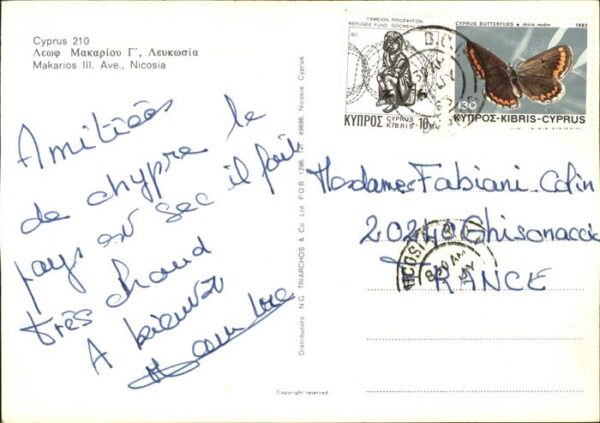 Cyprus 210
Λεωφ Μακαρίου Γ', Λευκωσία
Makarios III. Ave., Nicosia
Amitiées
de chypre le
pays est sec il fait
très chaud
A bientôt
Distributors: N.G. TRIARCHOS & Co. Ltd P.O.B. 1296, Tel. 49686, Nicosia, Cyprus
Copyright reserved
ΤΑΜΕΙΟΝ ΠΡΟΣΦΥΓΩΝ
REFUGEE FUND GÖÇMENLER
ΚΥΠΡΟΣ CYPRUS KIBRIS 10M
CYPRUS BUTTERFLIES Aricia medon 1983
130
ΚΥΠΡΟΣ-KIBRIS-CYPRUS
Mesdames Fabiani Colin
20240 Ghisonaccia
FRANCE
NICOSIA
8 30 AM